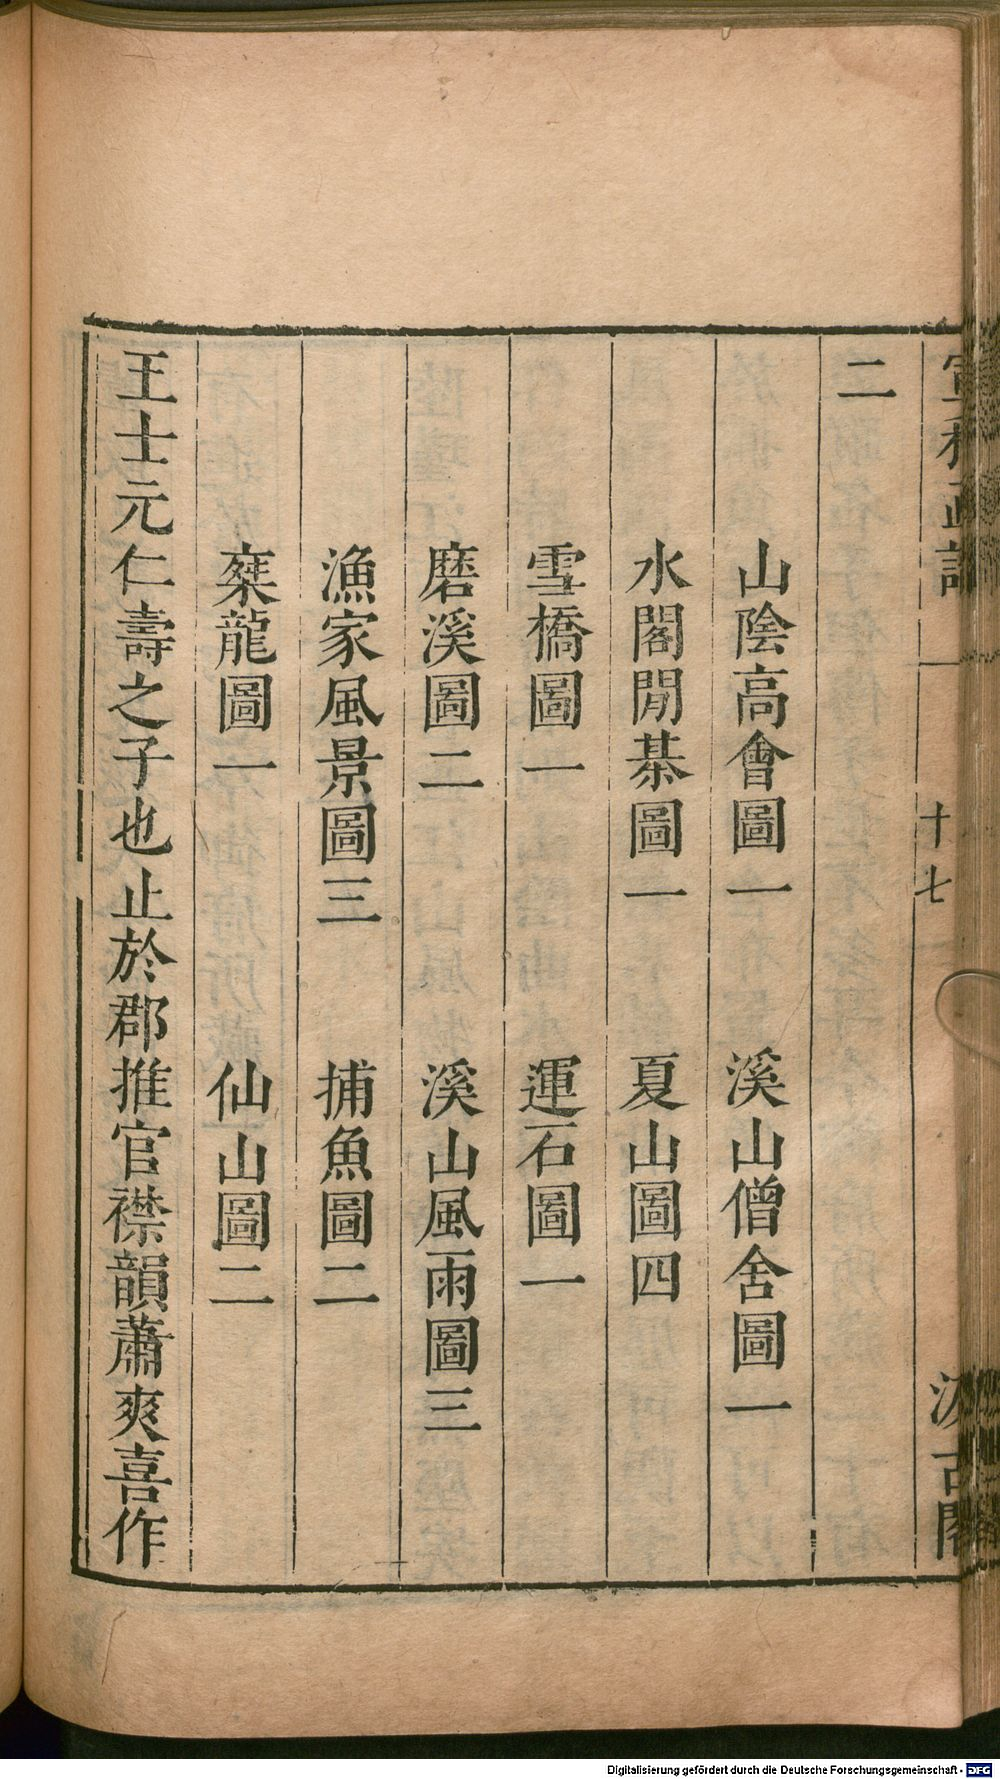 宣和畫譜 十七 汲古閣
二
山陰高會圖一 溪山僧舍圖一
水閣閒棊圖一 夏山圖四
雪橋圖一 運石圖一
磨溪圖二 溪山風雨圖三
漁家風景圖三 捕魚圖二
椉龍圖一 仙山圖二
王士元仁壽之子也止於郡推官襟韻蕭爽喜作
Digitalisierung gefördert durch die Deutsche Forschungsgemeinschaft - DFG